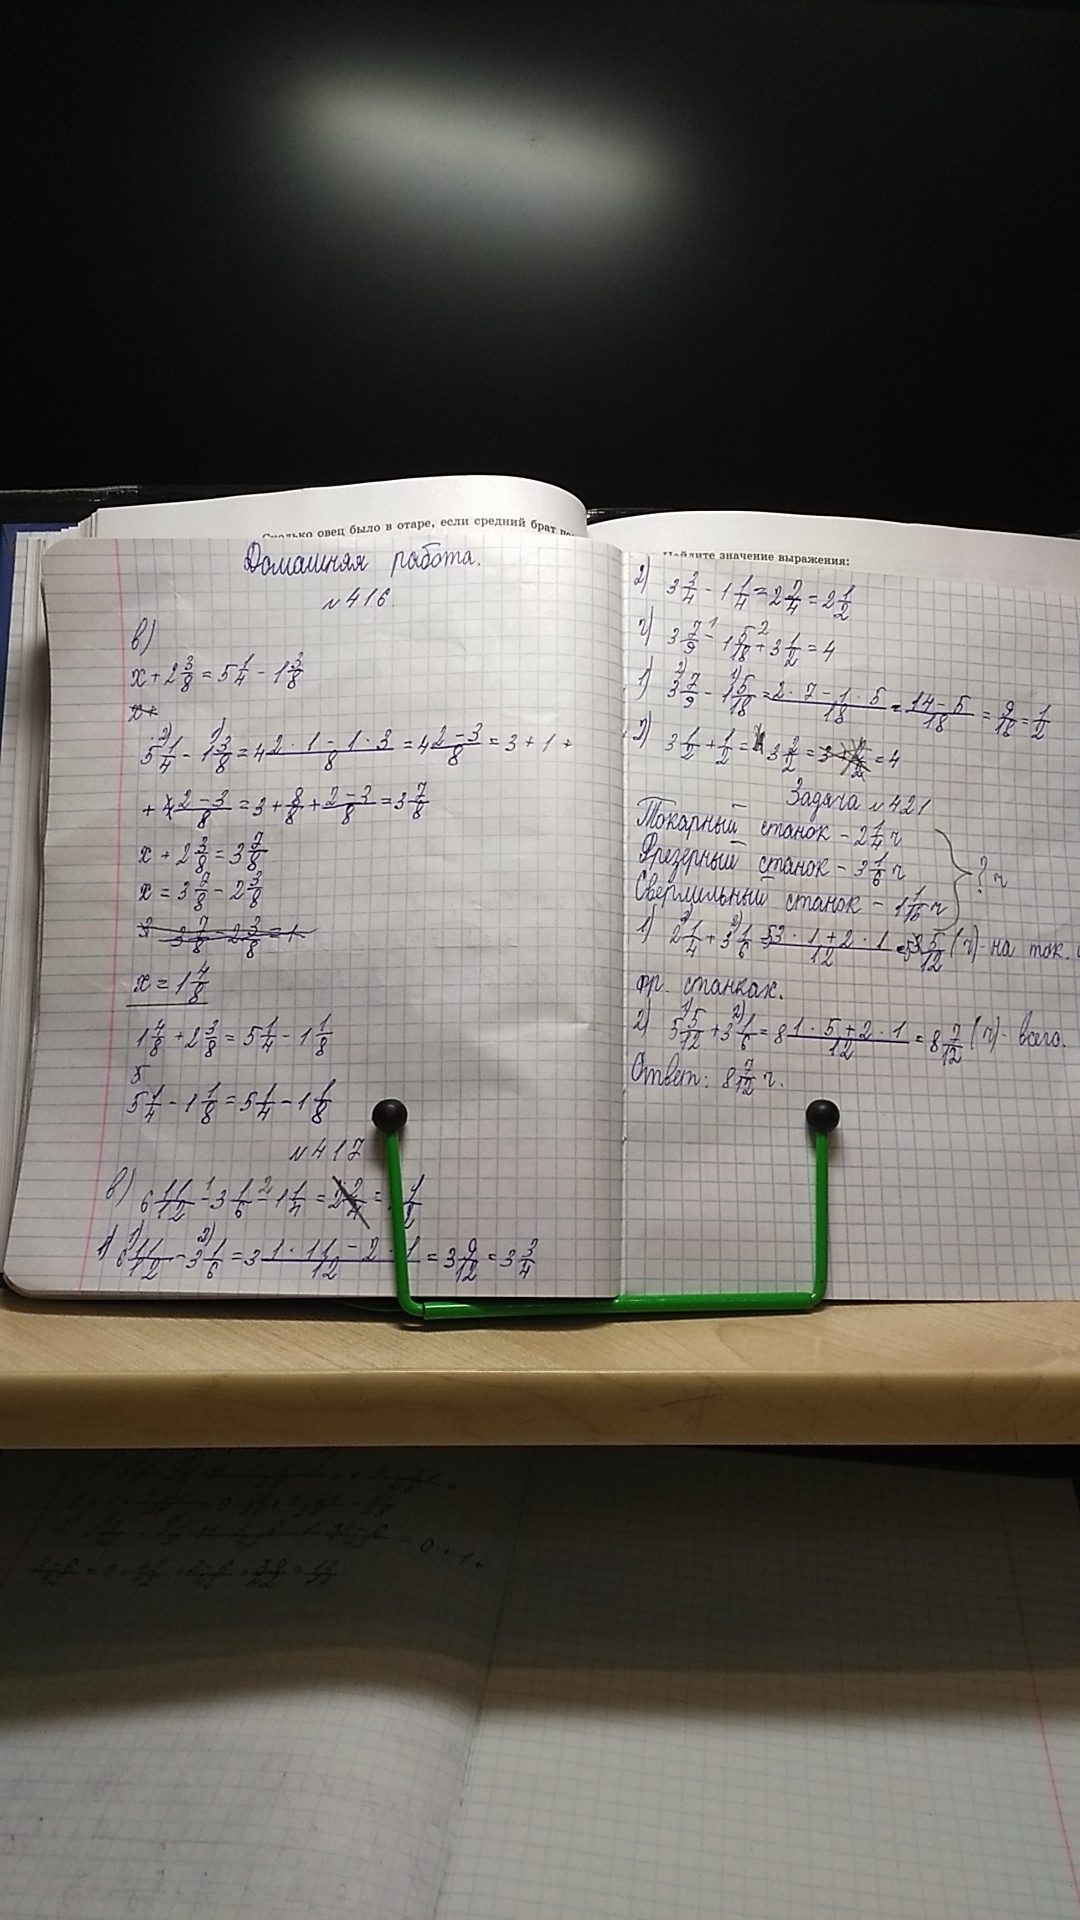 Сколько овец было в отаре, если средний брат
Домашняя работа.
№ 416.
в)
x + 2 3/8 = 5 1/4 - 1 3/8
5 1/4 - 1 3/8 = 4 (2 · 1 - 1 · 3)/8 = 4 (2 - 3)/8 = 3 + 1 +
+ (2 - 3)/8 = 3 + 8/8 + (2 - 3)/8 = 3 7/8
x + 2 3/8 = 3 7/8
x = 3 7/8 - 2 3/8
x = 1 4/8
1 4/8 + 2 3/8 = 5 1/4 - 1 1/8
5 1/4 - 1 1/8 = 5 1/4 - 1 1/8
№ 417
в) 6 11/12 - 3 1/6 - 1 1/4 = 2 2/4 =
1) 6 11/12 - 3 1/6 = 3 (1 · 11 - 2 · 1)/12 = 3 9/12 = 3 3/4
Найдите значение выражения:
2) 3 3/4 - 1 1/4 = 2 2/4 = 2 1/2
г) 3 7/9 - 1 5/18 + 3 1/2 = 4
1) 3 7/9 - 1 5/18 = (2 · 7 - 1 · 5)/18 = (14 - 5)/18 = 9/18 = 1/2
2) 3 1/2 + 1/2 = 3 2/2 = 4
Задача № 421
Токарный станок - 2 1/4 ч
Фрезерный станок - 3 1/6 ч
? ч
Сверлильный станок -
1) 2 1/4 + 3 1/6 = 5 (3 · 1 + 2 · 1)/12 = 5 5/12 (ч) - на ток. и
фр. станках.
2) 5 5/12 + 3 1/6 = 8 (1 · 5 + 2 · 1)/12 = 8 7/12 (ч) - всего.
Ответ: 8 7/12 ч.